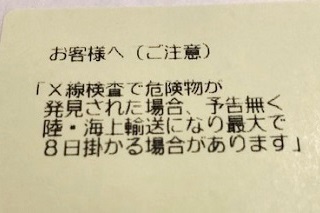 お客様へ（ご注意）
「X線検査で危険物が
発見された場合、予告無く
陸・海上輸送になり最大で
8日掛かる場合があります」